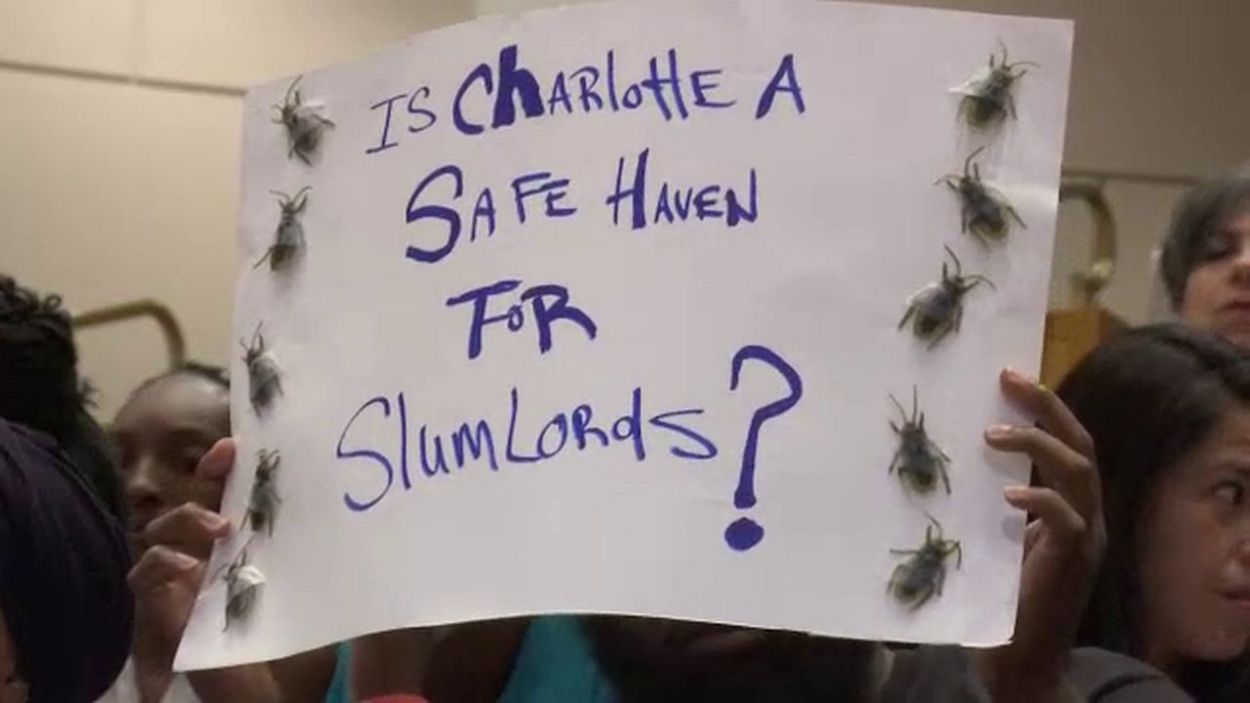 IS ChARlottE A
SAFE HAVEN
FOR
SlumLORdS?